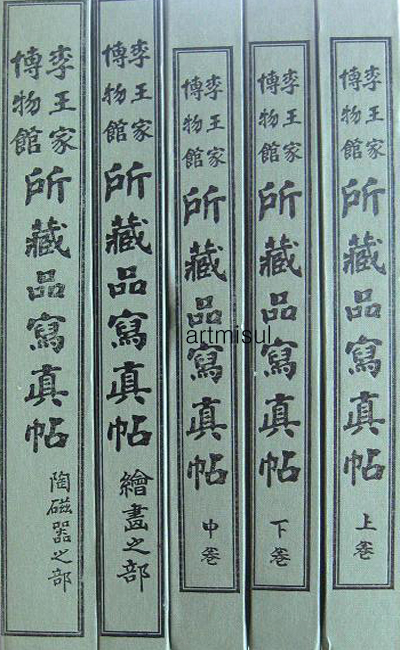 李王家
博物館
所藏品寫真帖
上卷
李王家
博物館
所藏品寫真帖
下卷
李王家
博物館
所藏品寫真帖
中卷
李王家
博物館
所藏品寫真帖
繪畫之部
李王家
博物館
所藏品寫真帖
陶磁器之部
artmisul